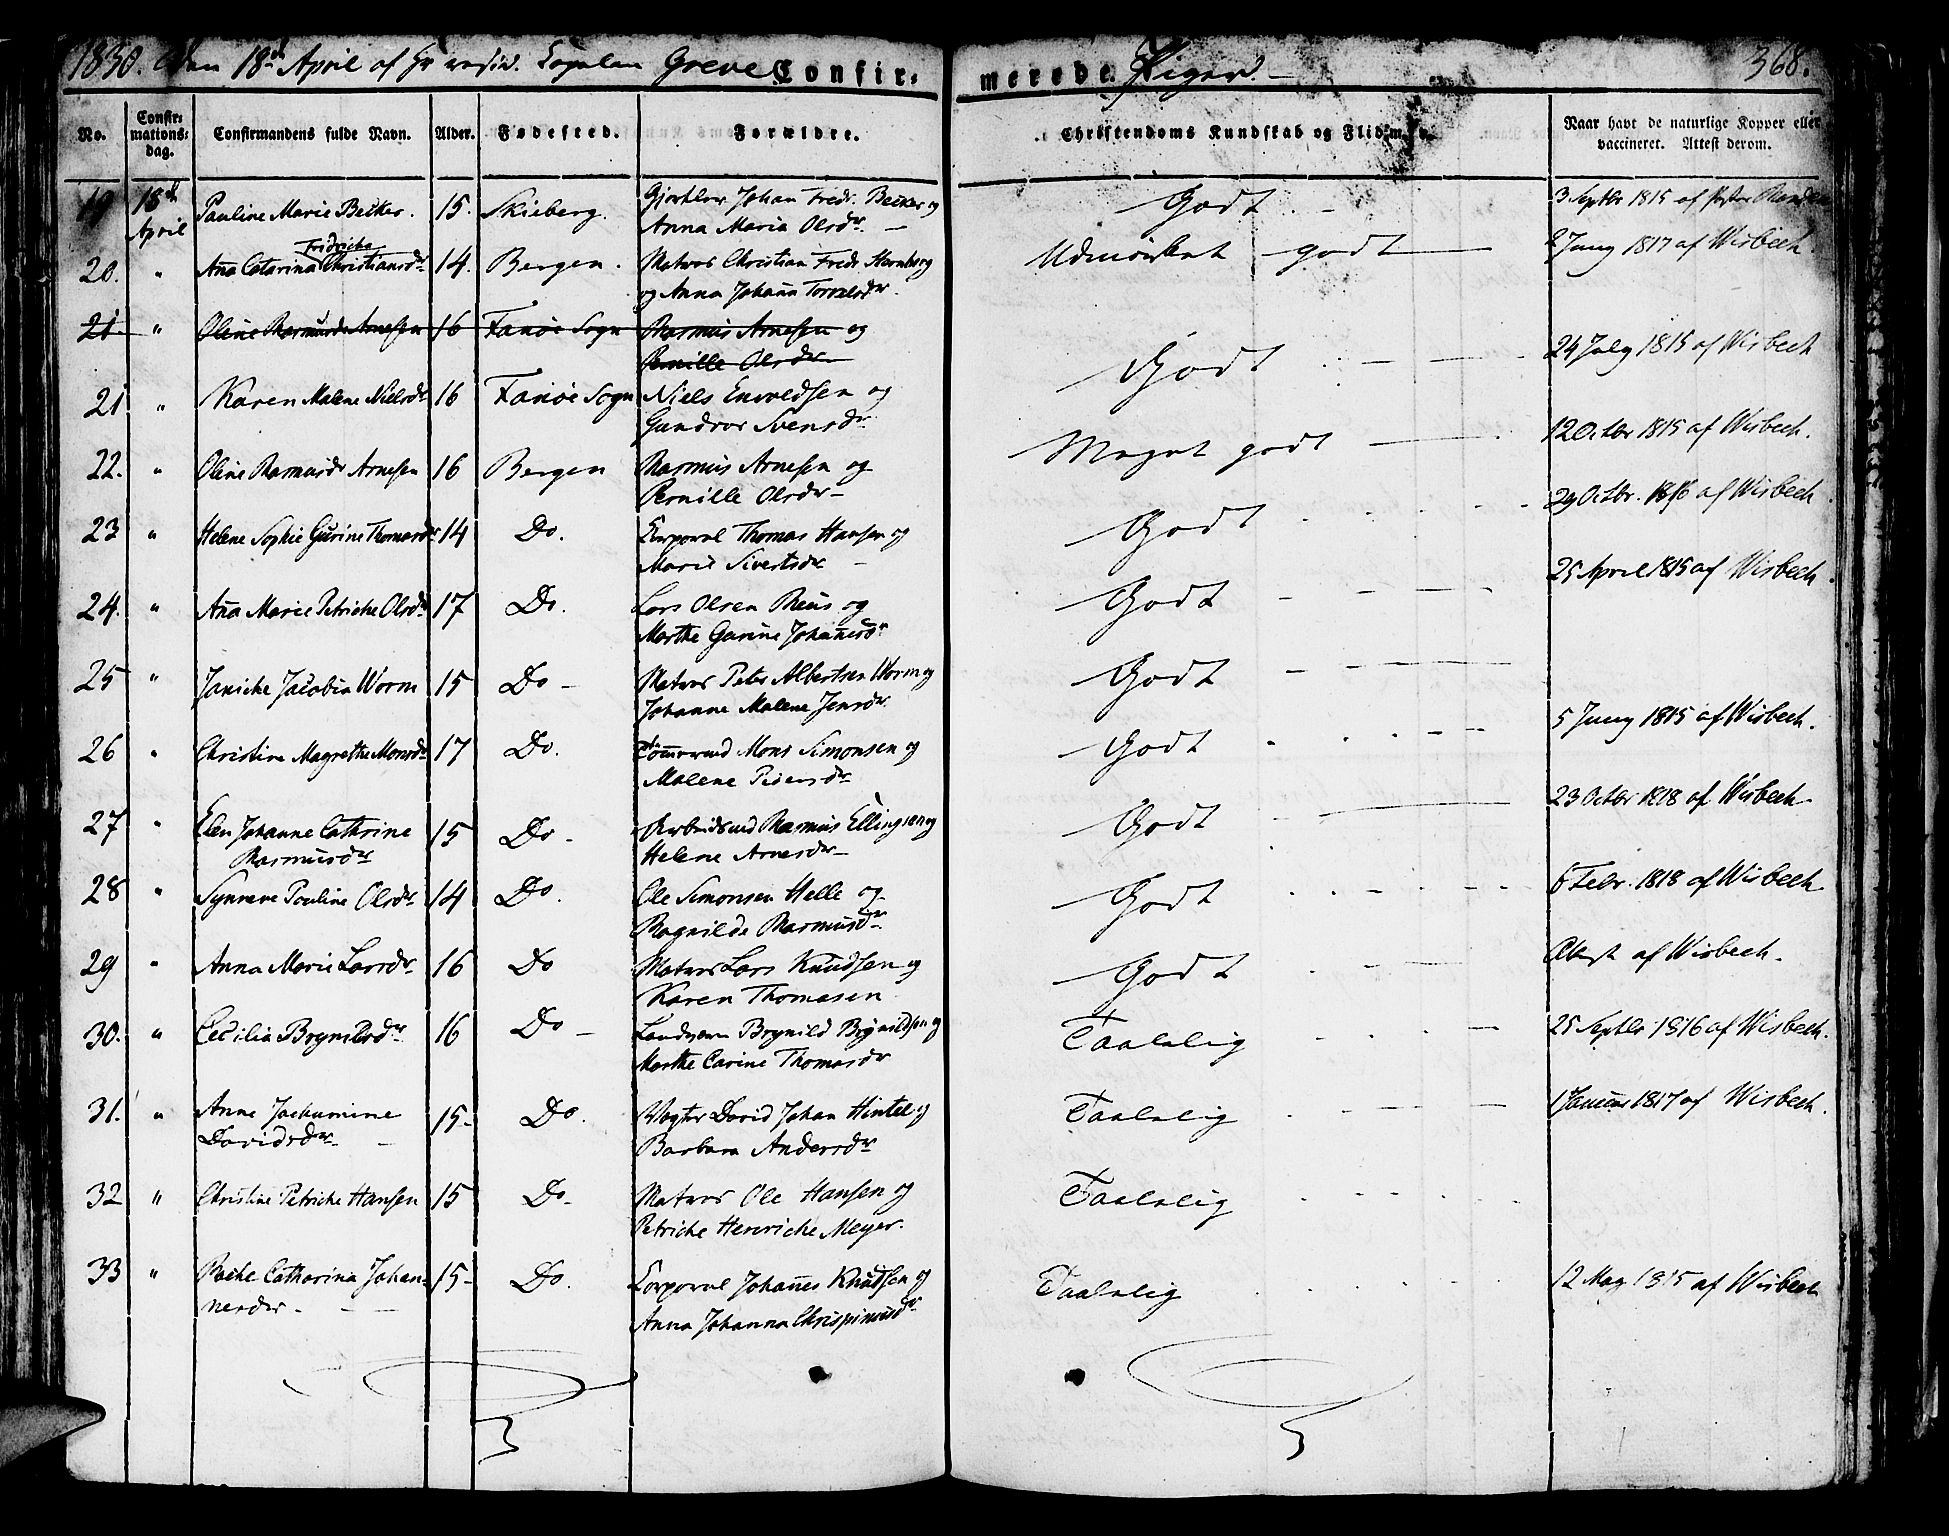 1830. den 18de April af Hr resid. Capelan Greve Confir= merede Piger. 368.
No. Confir= mations= dag. Confirmandens fulde Navn. Alder. Fødested. Forældre. Christendoms Kundskab og Flid. Naar havt de naturlige Kopper eller vaccineret. Attest derom.
19 18de April Pauline Marie Becker. 15. Skieberg. Johan Fredr. Becker og Anna Maria Olsdr. Godt 3 Septbr 1815 af
20. " Aña Catarina Fridricha Christiansdr 14. Bergen. Matros Christian Fredr og Anna Johaña Udmærket godt 2 Juny 1817 af Wisbech.
21. " Oline Rasmusdr Arnesen 16 Fanöe Sogn Rasmus Arnesen og Pernille Olsdr
21 " Karen Malene Nielsdr 16 Fanöe Sogn Niels Envoldsen og Gundror Svensdr Godt 24 July 1815 af Wisbech
22. " Oline Rasmusdr Arnesen 16 Bergen Rasmus Arnesen og Pernille Olsdr Meget godt 12 Octbr 1815 af Wisbech.
23 " Helene Sophie Gurine Thomasdr 14 Do. Corporal Thomas Hansen og Marie Sivertsdr Godt 29 Octbr. 1816 af Wisbech.
24. " Aña Marie Petriche Olsdr 17 Do. Lars Olsen Reus og Marthe Gurine Johañesdr Godt 25 April 1815 af Wisbech.
25 " Janiche Jacobia Worm 15 Do Matros Peter Albertsen Worm og Johanne Malene Jensdr Godt
26 " Christine Magrethe Monsdr 17 Do. Tömermd Mons Simonsen og Malene Pedersdr Godt 5 Juny 1815 af Wisbech.
27 " Elen Johanne Cathrine Rasmusdr 15 Do Arbeidsmd Rasmus Ellingsen og Helene Arnesdr Godt 23 Octbr 1818 af Wisbech
28 " Synneve Pouline Olsdr 14 Do. Ole Simonsen Helle og Ragnilde Rasmusdr Godt 6 Febr. 1818 af Wisbech
29 " Anna Marie Larsdr 16 Do Matros Lars Knudsen og Karen Thomasen Godt Attest af Wisbech.
30. " Cecilia Brynildsdr 16 Do Landværn Brynild Brynildsen og Marthe Carine Thomasdr Taalelig 25 Septbr 1816 af Wisbech.
31. " Anne Jochumine Davidsdr 15 Do. Vogter David Johan Hintel og Barbara Andersdr Taalelig 1 Januar 1817 af Wisbech.
32 " Christine Petriche Hansen 15 Do Matros Ole Hansen og Petriche Henriche Meyer. Taalelig
33 " Catharina Johan= nesdr 15 Do. Corporal Johañes Knudsen og Anna Johanna Chrispinusdr Taalelig 12 May 1815 af Wisbech